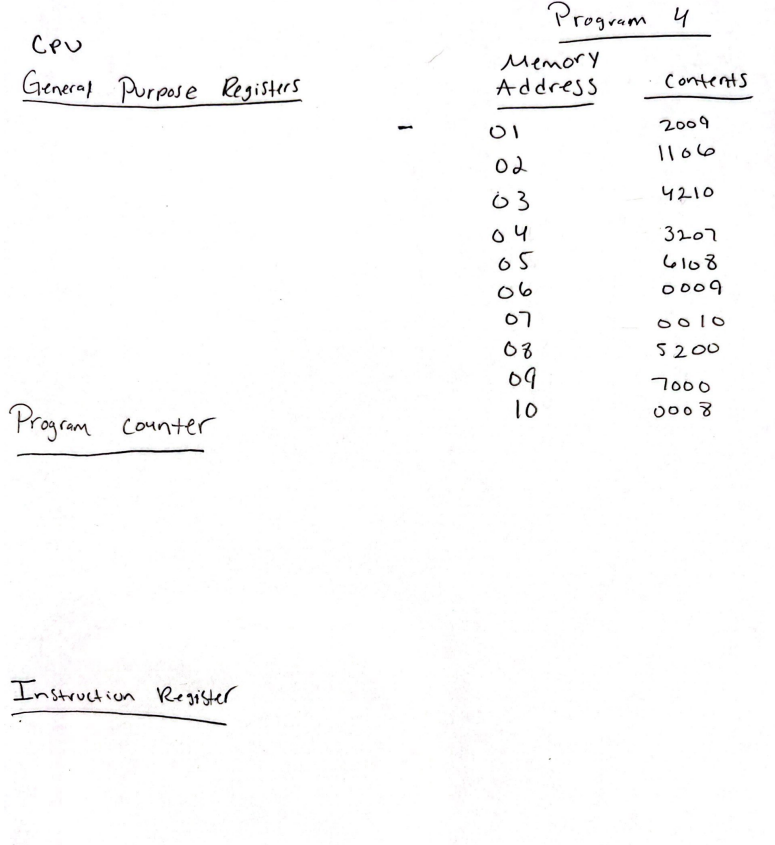 Program 4
CPU
General Purpose Registers
Memory Address Contents
- 01 2009
02 1106
03 4210
04 3207
05 6108
06 0009
07 0010
08 5200
09 7000
10 0008
Program counter
Instruction Register